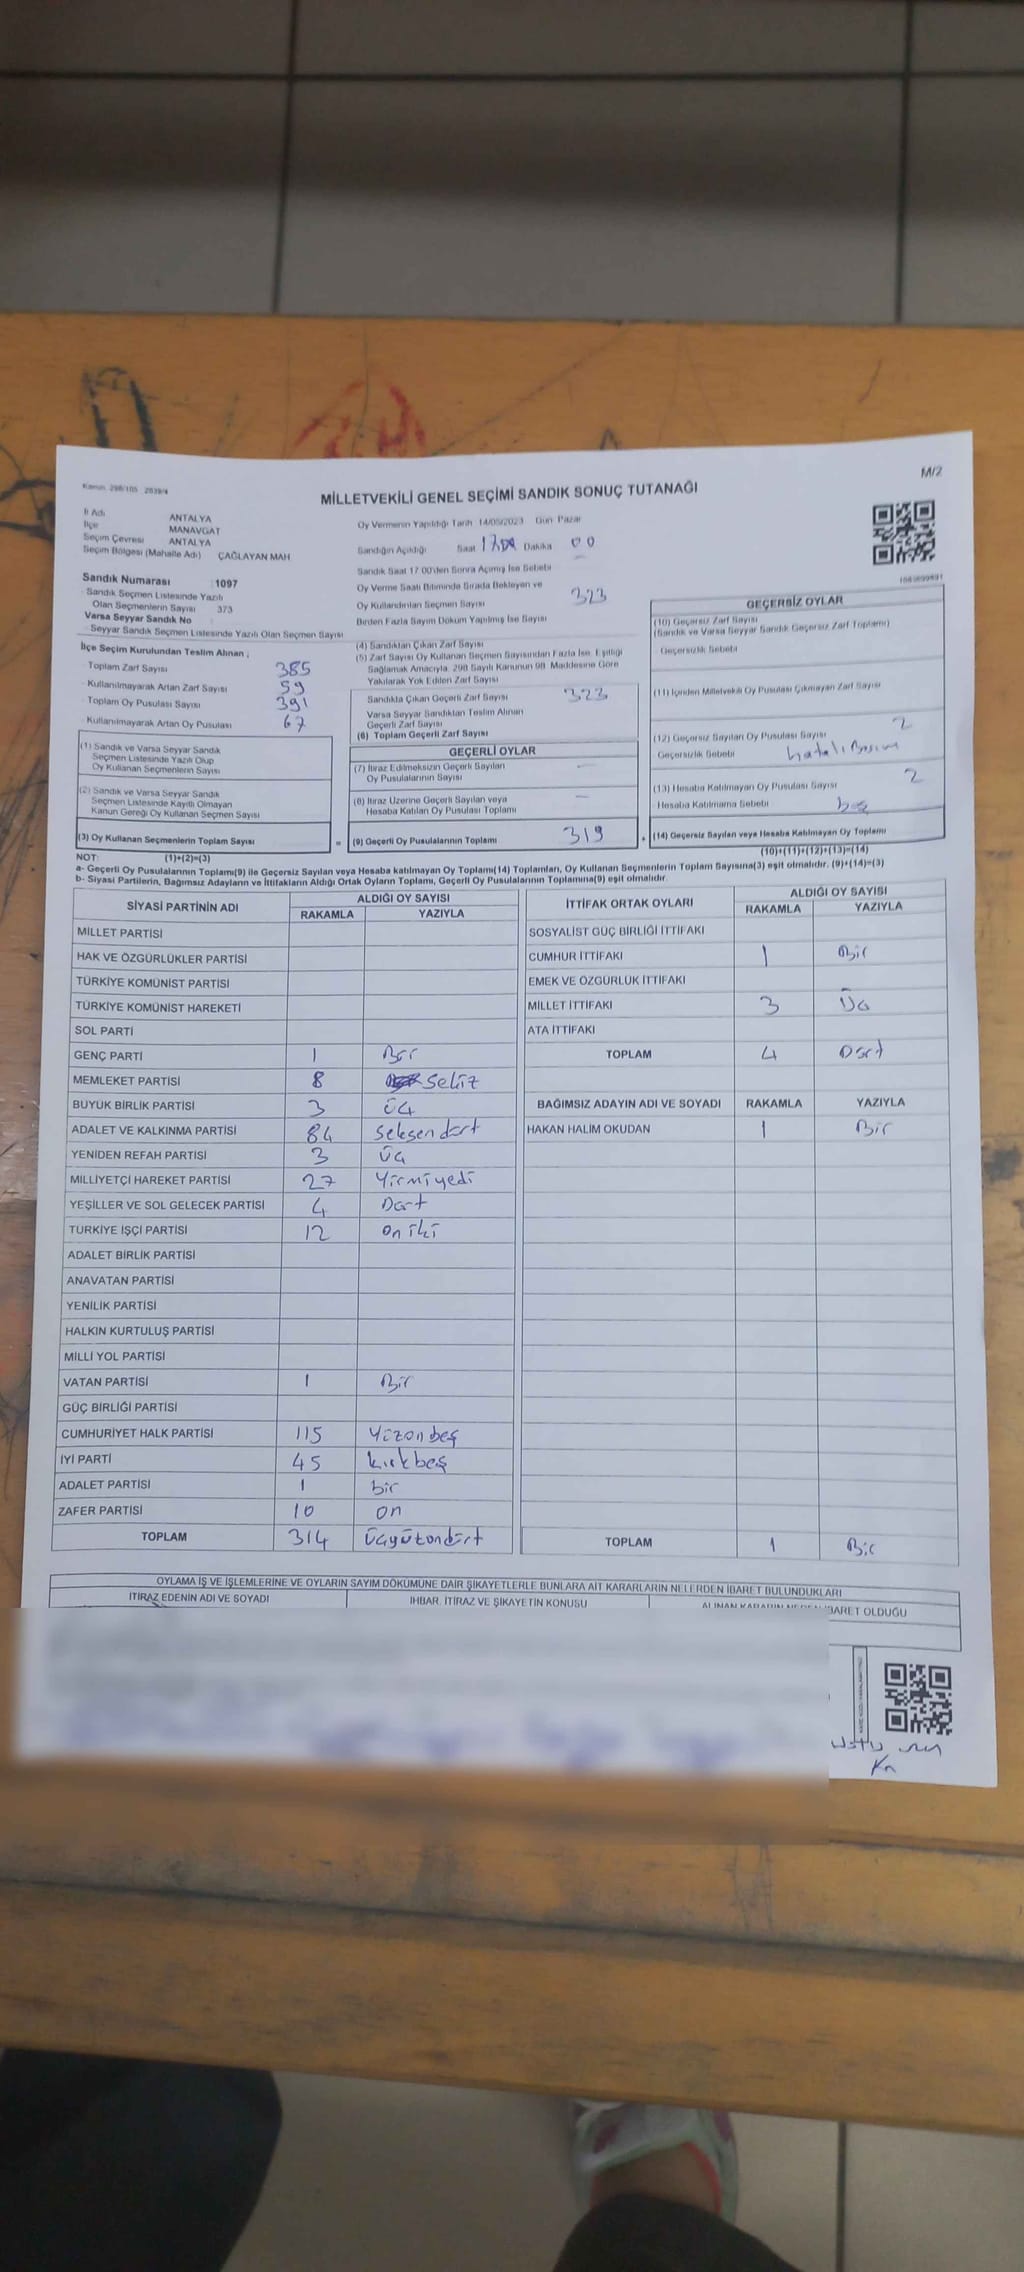 M/2
Kanun. 298/105 2839/4
MİLLETVEKİLİ GENEL SEÇİMİ SANDIK SONUÇ TUTANAĞI
İl Adı ANTALYA
İlçe MANAVGAT
Seçim Çevresi ANTALYA
Seçim Bölgesi (Mahalle Adı) ÇAĞLAYAN MAH
Sandık Numarası :1097
Sandık Seçmen Listesinde Yazılı
Olan Seçmenlerin Sayısı 373
Varsa Seyyar Sandık No
Seyyar Sandık Seçmen Listesinde Yazılı Olan Seçmen Sayısı
Oy Vermenin Yapıldığı Tarih 14/05/2023 Gün Pazar
Sandığın Açıldığı Saat 17 Dakika 00
Sandık Saat 17 00'den Sonra Açılmış İse Sebebi
Oy Verme Saati Bitiminde Sırada Bekleyen ve
Oy Kullandırılan Seçmen Sayısı 323
Birden Fazla Sayım Döküm Yapılmış İse Sayısı
İlçe Seçim Kurulundan Teslim Alınan ;
Toplam Zarf Sayısı 385
Kullanılmayarak Artan Zarf Sayısı 59
Toplam Oy Pusulası Sayısı 391
Kullanılmayarak Artan Oy Pusulası 67
(1) Sandık ve Varsa Seyyar Sandık
Seçmen Listesinde Yazılı Olup
Oy Kullanan Seçmenlerin Sayısı
(2) Sandık ve Varsa Seyyar Sandık
Seçmen Listesinde Kayıtlı Olmayan
Kanun Gereği Oy Kullanan Seçmen Sayısı
(3) Oy Kullanan Seçmenlerin Toplam Sayısı =
(4) Sandıktan Çıkan Zarf Sayısı
(5) Zarf Sayısı Oy Kullanan Seçmen Sayısından Fazla İse, Eşitliği
Sağlamak Amacıyla, 298 Sayılı Kanunun 98. Maddesine Göre
Yakılarak Yok Edilen Zarf Sayısı
Sandıkta Çıkan Geçerli Zarf Sayısı 323
Varsa Seyyar Sandıktan Teslim Alınan
Geçerli Zarf Sayısı
(6) Toplam Geçerli Zarf Sayısı
GEÇERLİ OYLAR
(7) İtiraz Edilmeksizin Geçerli Sayılan
Oy Pusulalarının Sayısı —
(8) İtiraz Üzerine Geçerli Sayılan veya
Hesaba Katılan Oy Pusulası Toplamı —
(9) Geçerli Oy Pusulalarının Toplamı 319 +
GEÇERSİZ OYLAR
(10) Geçersiz Zarf Sayısı
(Sandık ve Varsa Seyyar Sandık Geçersiz Zarf Toplamı)
Geçersizlik Sebebi
(11) İçinden Milletvekili Oy Pusulası Çıkmayan Zarf Sayısı
(12) Geçersiz Sayılan Oy Pusulası Sayısı 2
Geçersizlik Sebebi hatalı Basım
(13) Hesaba Katılmayan Oy Pusulası Sayısı 2
Hesaba Katılmama Sebebi boş
(14) Geçersiz Sayılan veya Hesaba Katılmayan Oy Toplamı
NOT: (1)+(2)=(3) (10)+(11)+(12)+(13)=(14)
a- Geçerli Oy Pusulalarının Toplamı(9) ile Geçersiz Sayılan veya Hesaba katılmayan Oy Toplamı(14) Toplamları, Oy Kullanan Seçmenlerin Toplam Sayısına(3) eşit olmalıdır. (9)+(14)=(3)
b- Siyasi Partilerin, Bağımsız Adayların ve İttifakların Aldığı Ortak Oyların Toplamı, Geçerli Oy Pusulalarının Toplamına(9) eşit olmalıdır.
SİYASİ PARTİNİN ADI ALDIĞI OY SAYISI
RAKAMLA YAZIYLA
MİLLET PARTİSİ
HAK VE ÖZGÜRLÜKLER PARTİSİ
TÜRKİYE KOMÜNİST PARTİSİ
TÜRKİYE KOMÜNİST HAREKETİ
SOL PARTİ
GENÇ PARTİ 1 Bir
MEMLEKET PARTİSİ 8 sekiz
BÜYÜK BİRLİK PARTİSİ 3 Üç
ADALET VE KALKINMA PARTİSİ 84 seksendört
YENİDEN REFAH PARTİSİ 3 Üç
MİLLİYETÇİ HAREKET PARTİSİ 27 Yirmiyedi
YEŞİLLER VE SOL GELECEK PARTİSİ 4 Dört
TÜRKİYE İŞÇİ PARTİSİ 12 on iki
ADALET BİRLİK PARTİSİ
ANAVATAN PARTİSİ
YENİLİK PARTİSİ
HALKIN KURTULUŞ PARTİSİ
MİLLİ YOL PARTİSİ
VATAN PARTİSİ 1 Bir
GÜÇ BİRLİĞİ PARTİSİ
CUMHURİYET HALK PARTİSİ 115 Yüzonbeş
İYİ PARTİ 45 kırkbeş
ADALET PARTİSİ 1 bir
ZAFER PARTİSİ 10 on
TOPLAM 314 Üçyüzondört
İTTİFAK ORTAK OYLARI ALDIĞI OY SAYISI
RAKAMLA YAZIYLA
SOSYALİST GÜÇ BİRLİĞİ İTTİFAKI
CUMHUR İTTİFAKI 1 Bir
EMEK VE ÖZGÜRLÜK İTTİFAKI
MİLLET İTTİFAKI 3 Üç
ATA İTTİFAKI
TOPLAM 4 Dört
BAĞIMSIZ ADAYIN ADI VE SOYADI RAKAMLA YAZIYLA
HAKAN HALİM OKUDAN 1 Bir
TOPLAM 1 Bir
OYLAMA İŞ VE İŞLEMLERİNE VE OYLARIN SAYIM DÖKÜMÜNE DAİR ŞİKAYETLERLE BUNLARA AİT KARARLARIN NELERDEN İBARET BULUNDUKLARI
İTİRAZ EDENİN ADI VE SOYADI İHBAR, İTİRAZ VE ŞİKAYETİN KONUSU ALINAN KARARIN NEDEN İBARET OLDUĞU